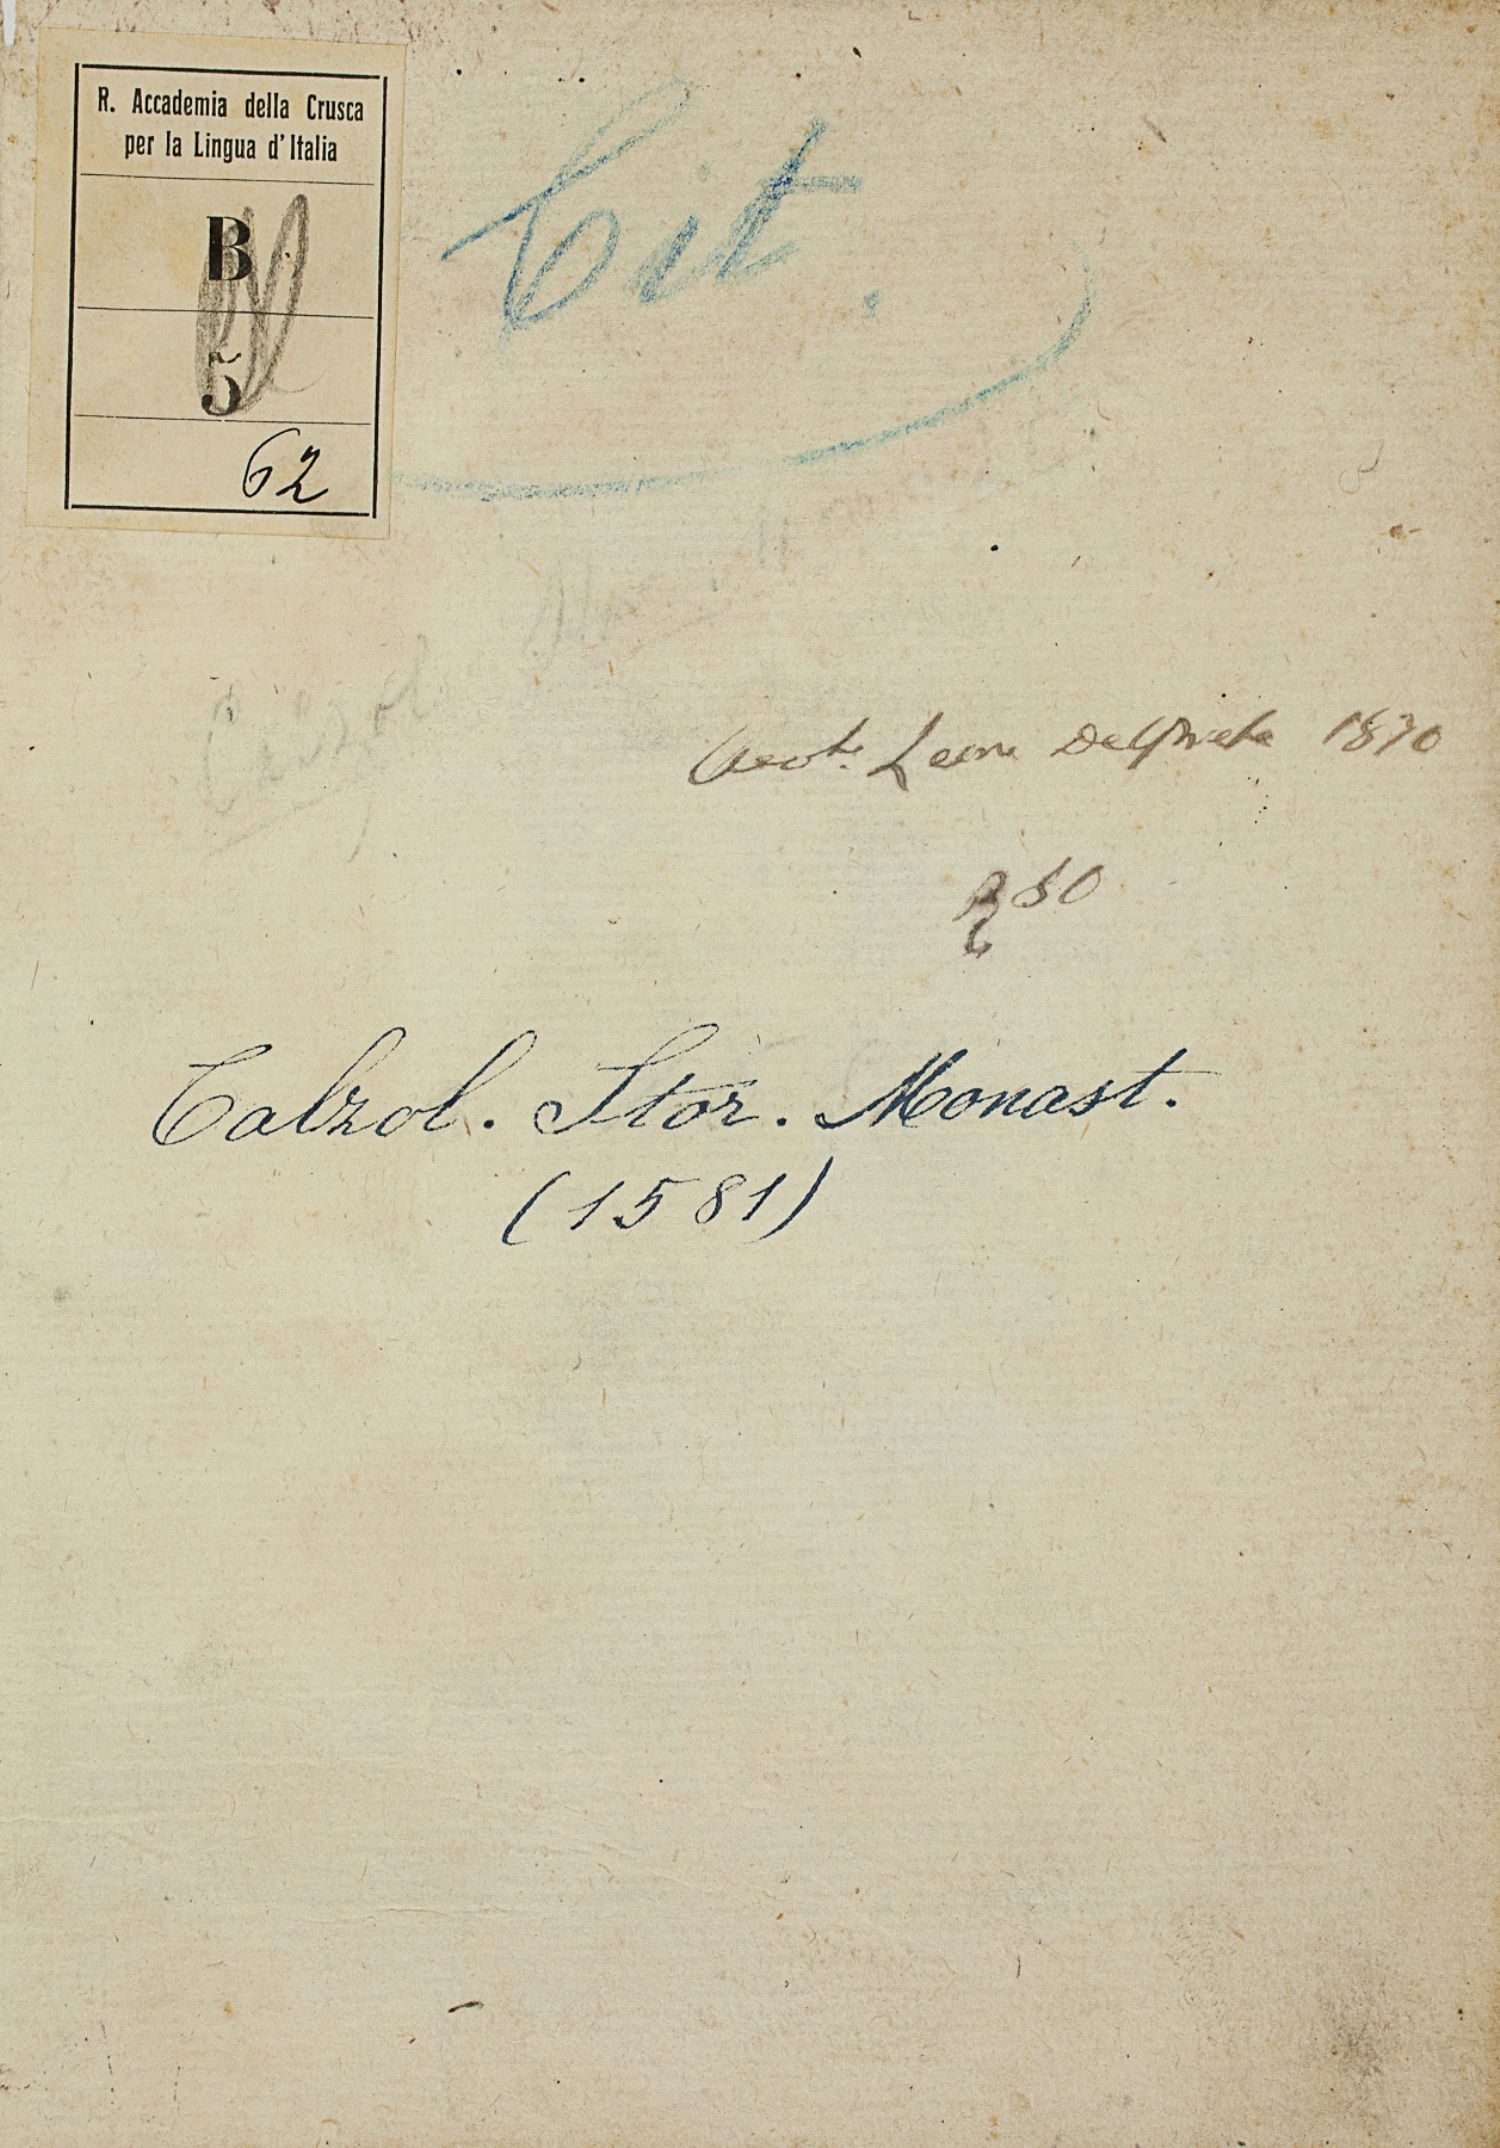 R. Accademia della Crusca
per la Lingua d'Italia
B
5
62
Cit.
Leone Delprete 1870
Calzol
Calzol. Stor. Monast.
(1581)